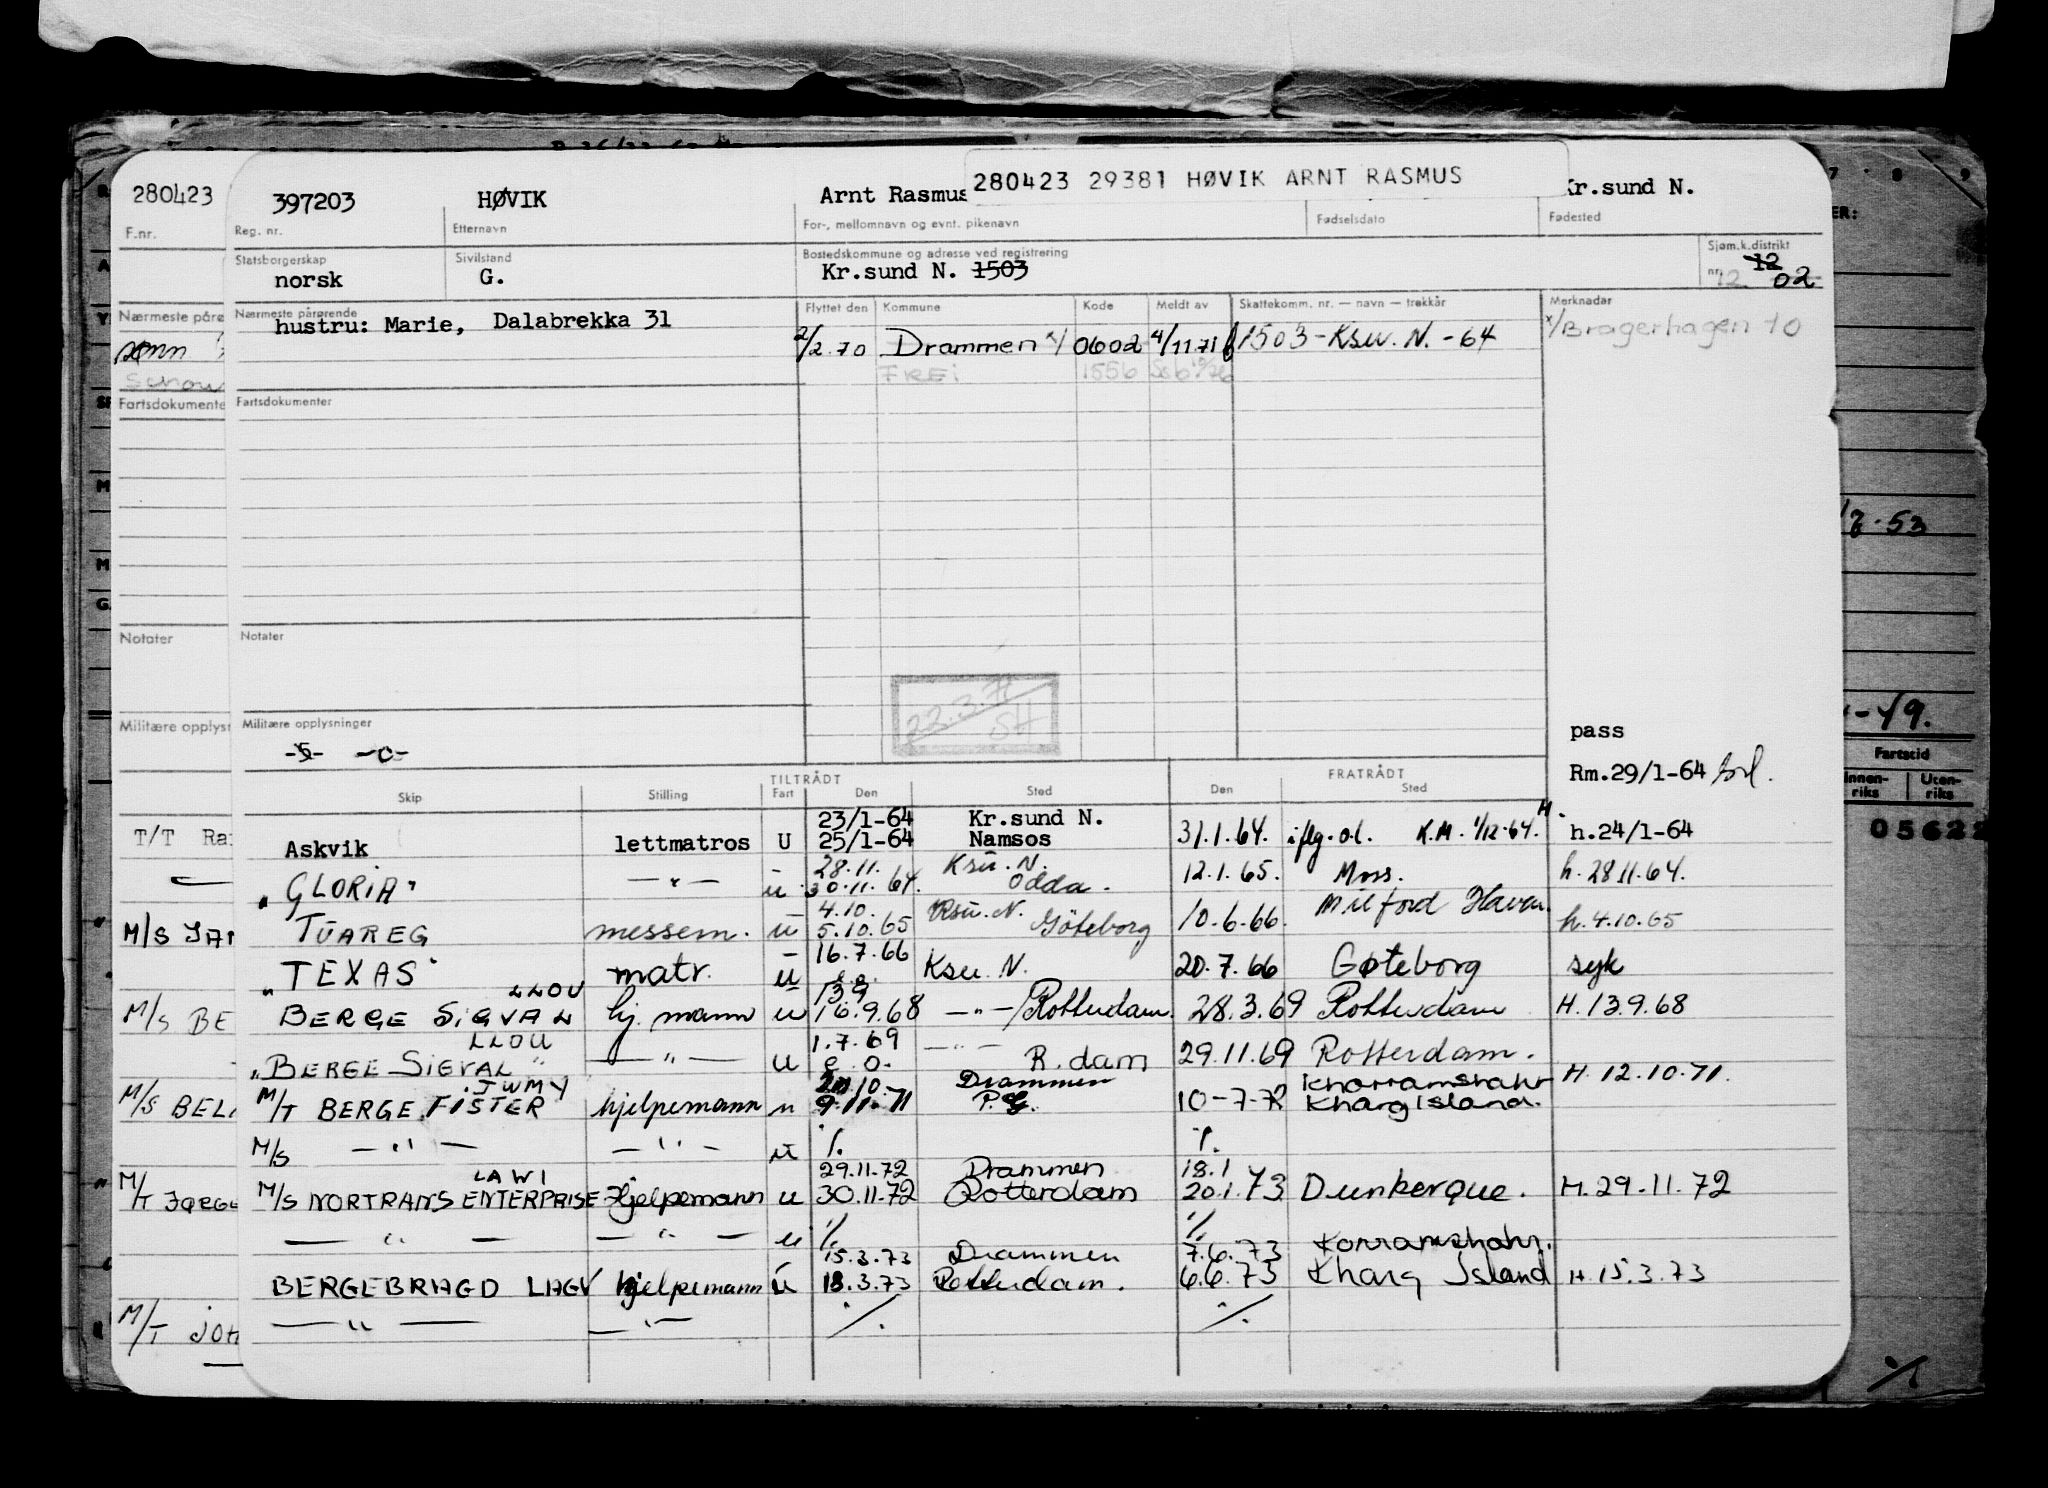 280423 29381 HØVIK ARNT RASMUS
280423 397203 HØVIK Arnt Rasmus Kr.sund N.
F.nr. Reg. nr. Etternavn For-, mellomnavn og evnt. pikenavn Fødselsdato Fødested
Statsborgerskap Sivilstand Bostedskommune og adresse ved registrering Sjøm.k.distrikt
norsk G. Kr.sund N. 1503 nr. 12 12 02
Nærmeste pårørende Flyttet den Kommune Kode Meldt av Skattekomm. nr. — navn — trekkår Merknader
hustru: Marie, Dalabrekka 31
2/2.70 Drammen x/ 0602 4/11 71 1503-Ksu. N. -64 x/Bragerhagen 10
FREi 1556
Fartsdokumenter
Notater
22.3.71
SH
Militære opplysninger
pass
Rm.29/1-64
TILTRÅDT FRATRÅDT
Skip Stilling Fart Den Sted Den Sted
23/1-64 Kr.sund N.
Askvik lettmatros U 25/1-64 Namsos 31.1.64. iflg. o.l. K.M. 1/12-64. h.24/1-64
28.11. Ksu. N.
"GLORIA" — " — u 30.11.64. Odda. 12.1.65. Moss. h. 28 11.64.
4.10. Ksu. N.
TUAREG messem. u 5.10.65 Göteborg 10.6.66. Milford Haven. h. 4.10.65
16.7.66
"TEXAS" matr. u e.o. Ksu. N. 20.7.66 Gøteborg syk
LLOU 13.9
BERGE SIGVAL hj. mann u 16.9.68 — " — / Rotterdam. 28.3.69 Rotterdam H. 13.9.68
LLOU 1.7.69 — " —
"BERGE SIGVAL" — " — u e.o. R.dam 29.11.69 Rotterdam.
JWMY Drammen Khorramshahr H. 12.10.71.
M/T BERGE FISTER hjelpemann u 9.11.71 P.G. 10-7-72 Kharg Island.
M/S — " — — " — u ./. ./.
LAWI 29.11.72 Drammen 18.1
M/S NORTRANS ENTERPRISE Hjelpemann u 30.11.72 Rotterdam 20.1.73 Dunkerque. H. 29.11.72
— " — — " — u ./. ./.
15.3.73 Drammen 7.6.73 Korramshahr.
BERGEBRAGD LAGV hjelpemann u 18.3.73 Rotterdam. 6.6.73 Kharg Island H. 15.3.73
— " — — " — ./. ./.
F.nr.
Fartsdokumente
Notater
Militære opplys
T/T Ra
M/S BE
M/S BEL
M/T JØRG
M/T JOH
7 8 9
7.53
-49.
Fartstid
Innen-riks Uten-riks
05622
./.